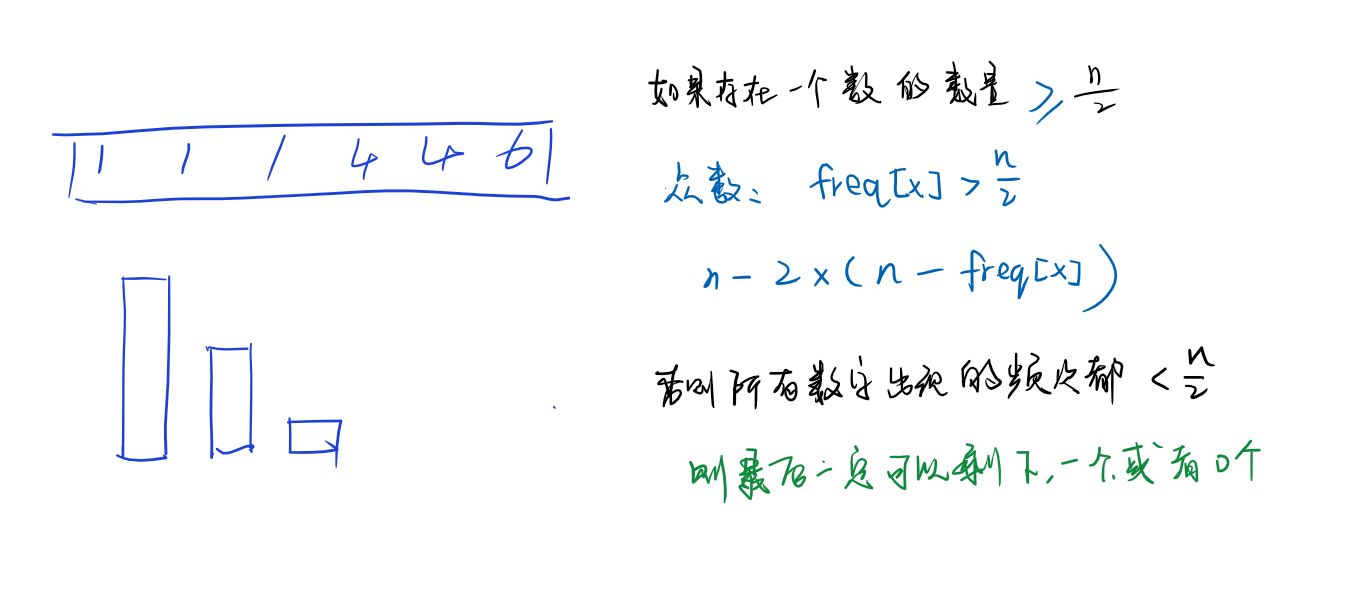 1 1 1 4 4 6
如果存在一个数的数量 ⩾ n/2
众数: freq[x] > n/2
n - 2 × (n - freq[x])
否则所有数字出现的频次都 < n/2
则最后一定可以剩下,一个或者0个